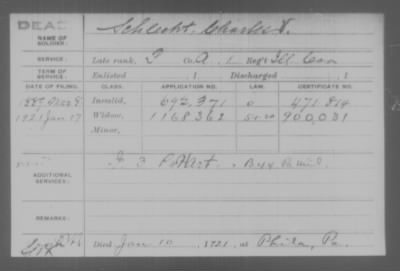 DEAD
NAME OF SOLDIER: Schlecht, Charles
SERVICE: Late rank, Co. A, 1 Reg't Ill Cav
TERM OF SERVICE: Enlisted , 1 Discharged , 1
DATE OF FILING. CLASS. APPLICATION NO. LAW. CERTIFICATE NO.
Invalid, 692,371 471,814
1921 Jan 17 Widow, 1168362 900,031
Minor,
ADDITIONAL SERVICES:
REMARKS:
Died Jan 10, 1921, at Phila, Pa.